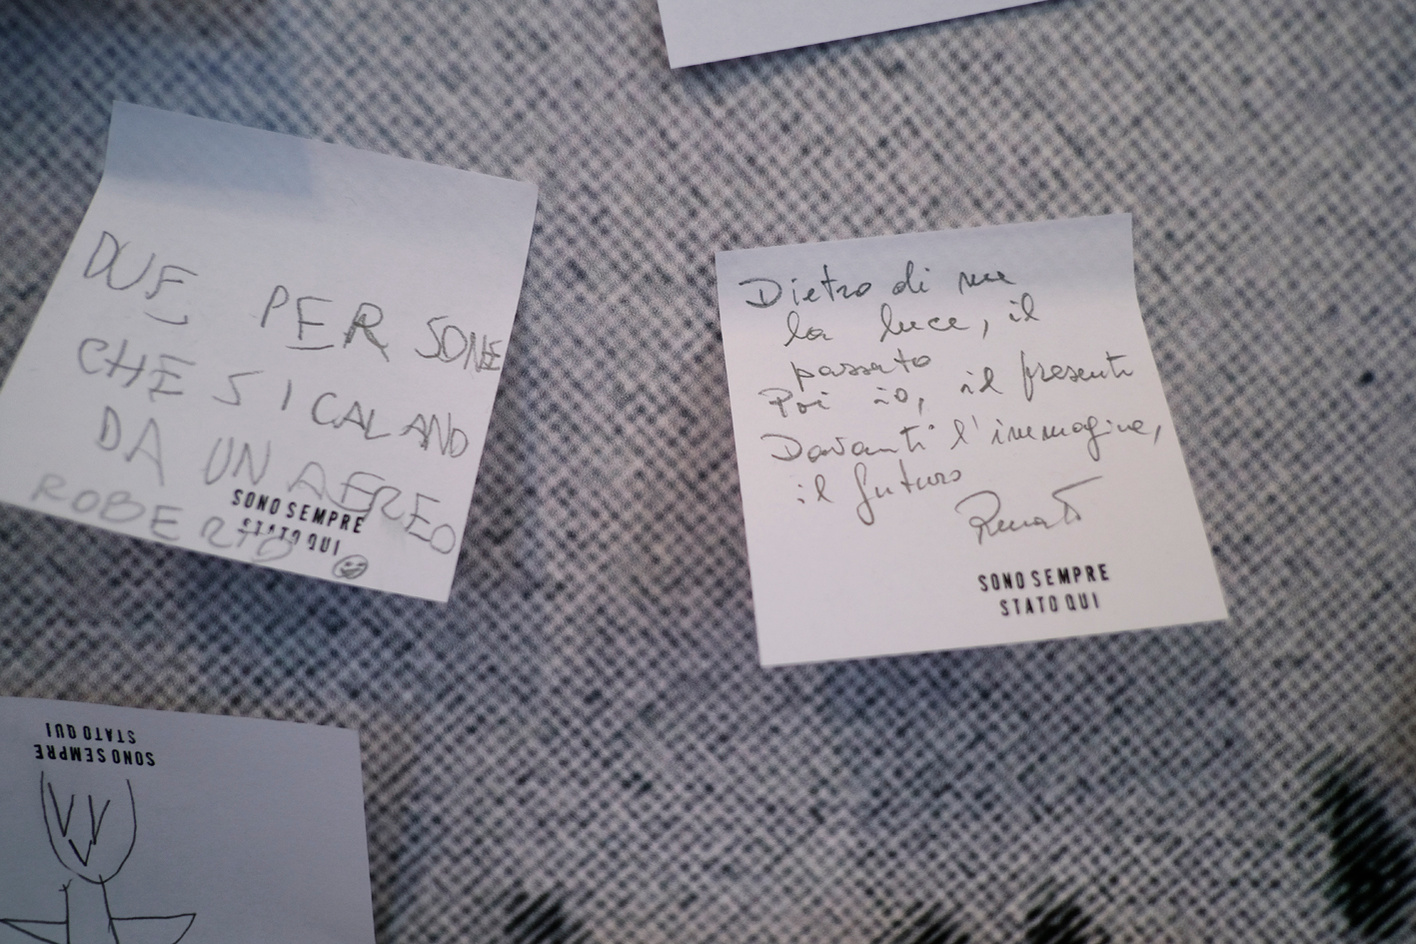 DUE PERSONE
CHE SI CALANO
DA UN AEREO
ROBERTO
SONO SEMPRE
STATO QUI
Dietro di me
la luce, il
passato
Poi io, il presente
Davanti l'immagine,
il futuro
Renato
SONO SEMPRE
STATO QUI
SONO SEMPRE
STATO QUI